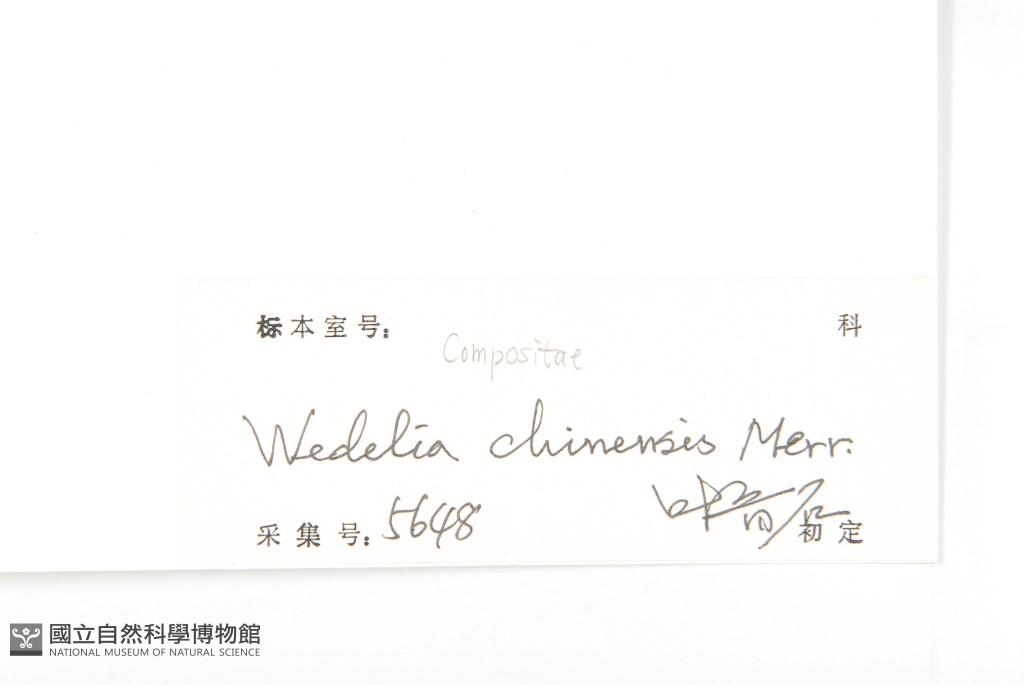 标本室号: 科
Compositae
Wedelia chinensis Merr.
采集号: 5648 初定
國立自然科學博物館
NATIONAL MUSEUM OF NATURAL SCIENCE